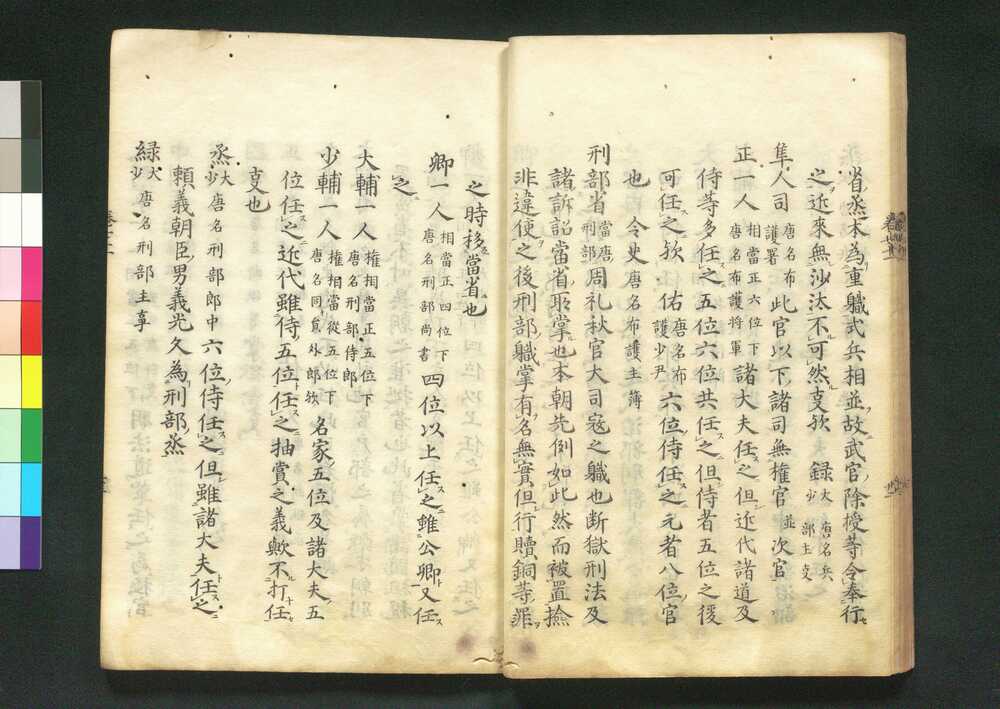 省丞本為重職式兵相並故武官除授等令奉行
之近來無沙汰不可然叓欤 録大少 唐名兵部主叓
隼人司 唐名布護署 此官以下諸司無權官並次官
正一人 相當正六位下唐名布護将軍 諸大夫任之但近代諸道及
侍等多任之五位六位共任之但侍者五位之後
可任之欤 佑唐名布護少尹 六位侍任之元者八位官
也 令史唐名布護主薄
刑部省 當唐刑部 周礼秋官大司寇之職也断獄刑法及
諸訴詔當省取掌也本朝先例如此然而被置撿
非違使之後刑部職掌有名無實但行贖銅等罪
之時移當省也
卿一人 相當正四位下唐名刑部尚書 四位以上任之雖公卿又任
之
大輔一人 權相當正五位下唐名刑部侍郎
少輔一人 權相當從五位下唐名同員外郎欤 名家五位及諸大夫五
位任之近代雖侍五位任之抽賞之義歟不打任
叓也
丞大少 唐名刑部郎中 六位侍任之但雖諸大夫任之
頼義朝臣男義光久為刑部丞
録大少 唐名刑部主事